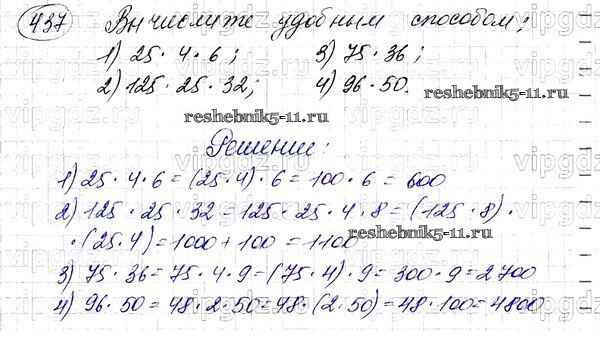 437 Вычислите удобным способом:
1) 25 · 4 · 6; 3) 75 · 36;
2) 125 · 25 · 32; 4) 96 · 50.
reshebnik5-11.ru reshebnik5-11.ru
Решение:
1) 25 · 4 · 6 = (25 · 4) · 6 = 100 · 6 = 600
2) 125 · 25 · 32 = 125 · 25 · 4 · 8 = (125 · 8) ·
· (25 · 4) = 1000 + 100 = 1100
reshebnik5-11.ru
3) 75 · 36 = 75 · 4 · 9 = (75 · 4) · 9 = 300 · 9 = 2700
4) 96 · 50 = 48 · 2 · 50 = 48 · (2 · 50) = 48 · 100 = 4800
vipgdz.ru